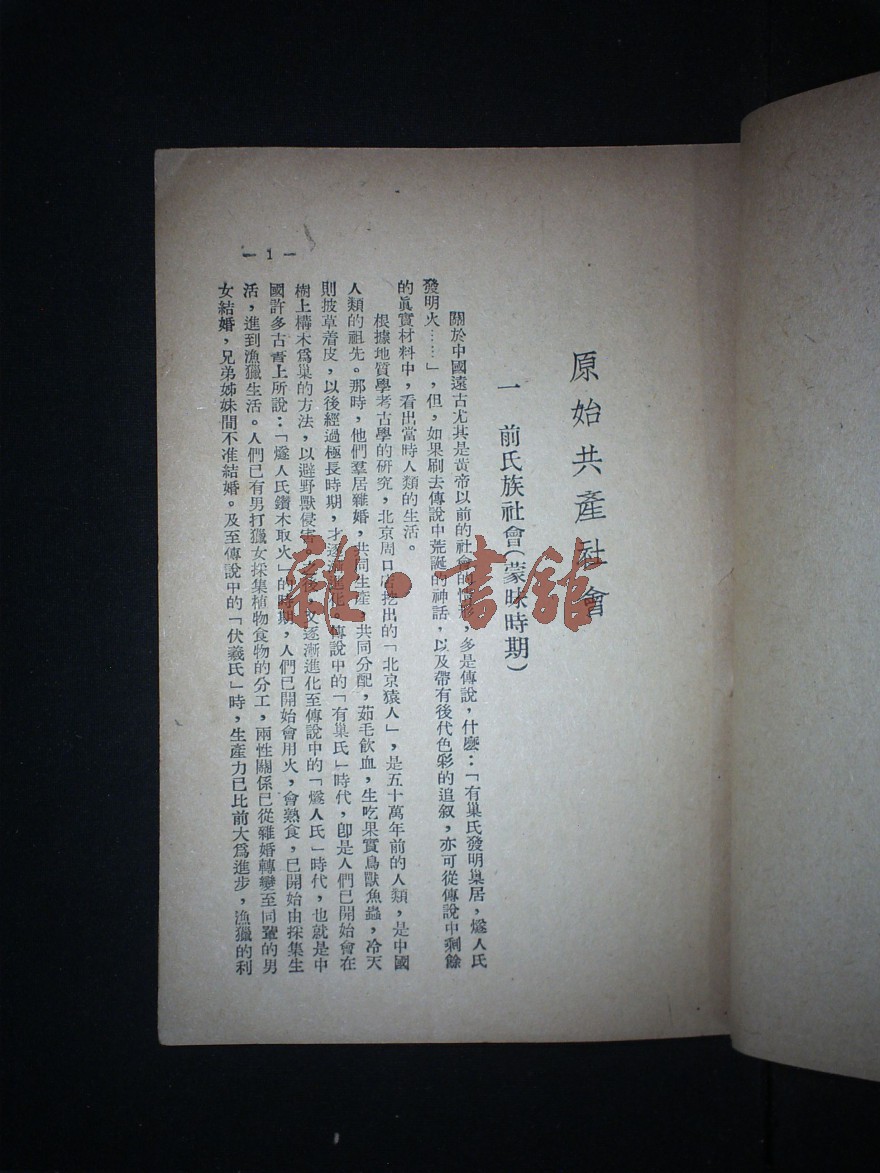 原始共產社會
一 前氏族社會（蒙昧時期）
關於中國遠古尤其是黃帝以前的社會的情形，多是傳說，什麼：「有巢氏發明巢居，燧人氏
發明火……」，但，如果刷去傳說中荒誕的神話，以及帶有後代色彩的追叙，亦可從傳說中剩餘
的眞實材料中，看出當時人類的生活。
根據地質學考古學的研究，北京周口店挖出的「北京猿人」，是五十萬年前的人類，是中國
人類的祖先。那時，他們羣居雜婚，共同生產，共同分配，茹毛飲血，生吃果實鳥獸魚蟲，冷天
則披草着皮，以後經過極長時期，才逐 傳說中的「有巢氏」時代，卽是人們已開始會在
樹上構木爲巢的方法，以避野獸侵害 後，又逐漸進化至傳說中的「燧人氏」時代，也就是中
國許多古書上所說：「燧人氏鑽木取火」的時期，人們已開始會用火，會熟食，已開始由採集生
活，進到漁獵生活。人們已有男打獵女採集植物食物的分工，兩性關係已從雜婚轉變至同輩的男
女結婚，兄弟姊妹間不准結婚。及至傳說中的「伏羲氏」時，生產力已比前大爲進步，漁獵的利
— 1 —
雜·書館